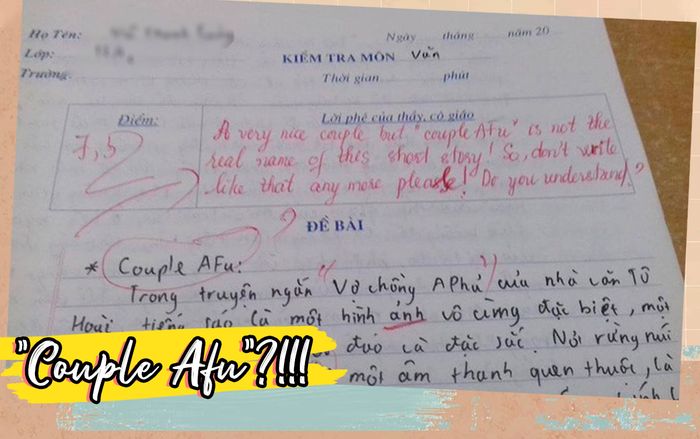 Họ Tên:
Ngày tháng năm 20
Lớp:
KIỂM TRA MÔN Văn
Trường
Thời gian phút
Điểm:
Lời phê của thầy, cô giáo
7,5
A very nice couple but "couple Afu" is not the
real name of this short story! So, don't write
like that any more please! Do you understand?
ĐỀ BÀI
* Couple AFu:
Trong truyện ngắn "Vợ chồng A Phủ" của nhà văn Tô
Hoài tiếng sáo là một hình ảnh vô cùng đặc biệt, một
đáo và đặc sắc. Nơi rừng núi
một âm thanh quen thuộc, là
"Couple Afu"?!!!